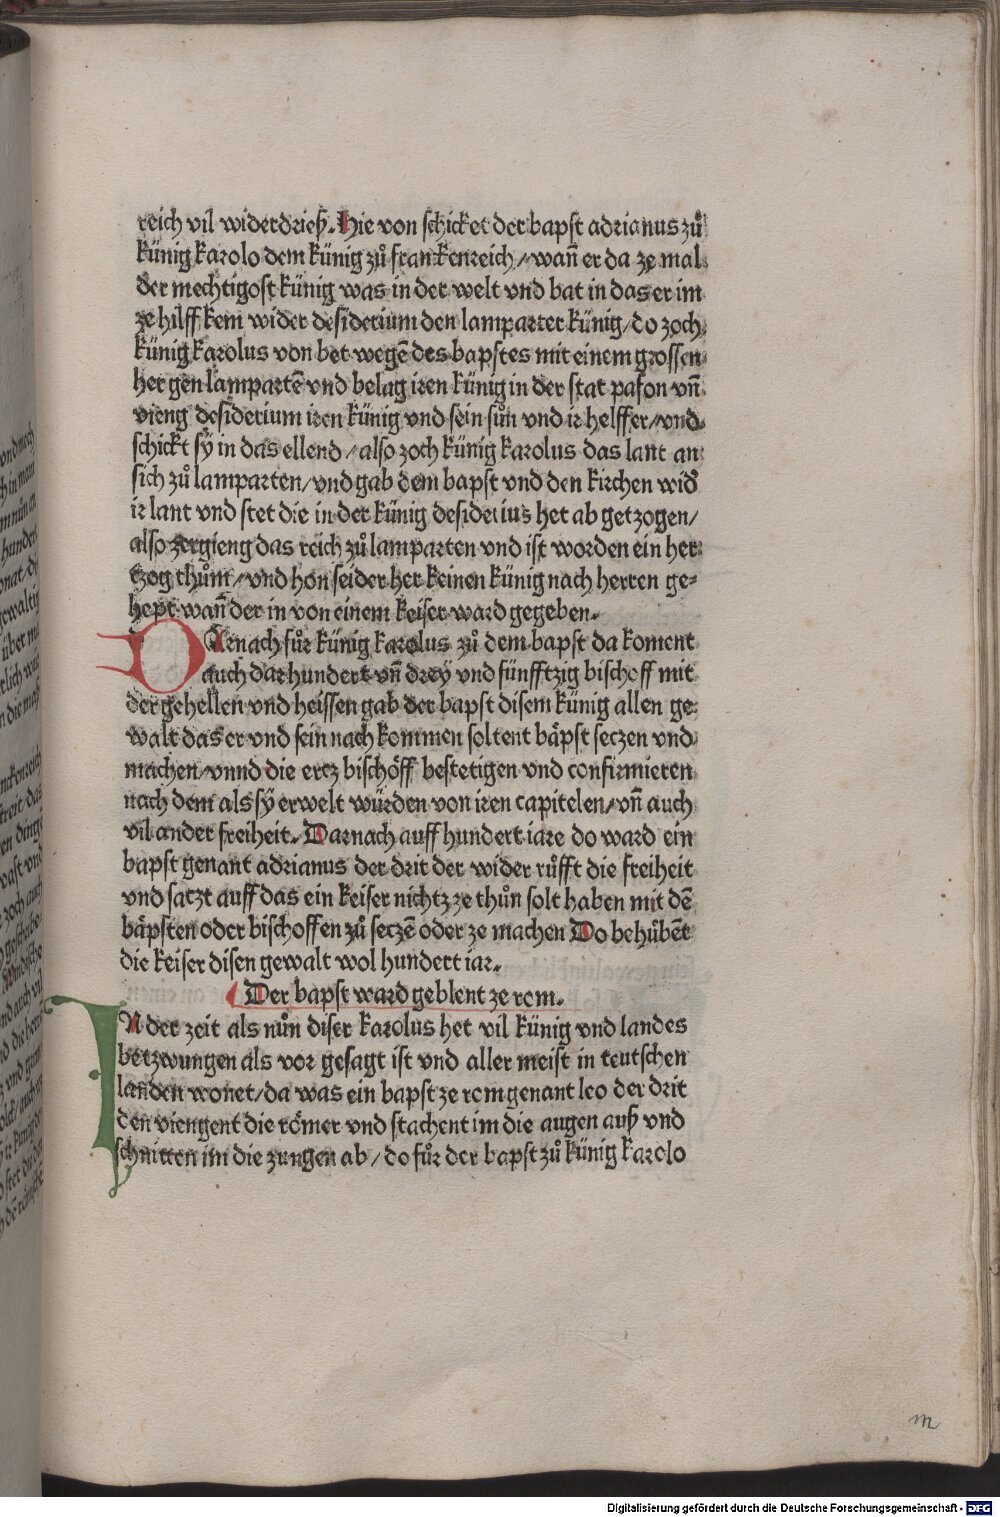 reich vil widerdrieß. Hie von schicket der bapst adrianus zů
künig karolo dem künig zů franckenreich / wañ er da ze mal
der mechtigost künig was in der welt vnd bat in das er im
ze hilff kem wider desiderium den lamparter künig / do zoch
künig karolus von bet wegē des bapstes mit einem grossen
her gen lampartē vnd belag iren künig in der stat pafon vñ
vieng desiderium iren künig vnd sein sůn vnd ir helffer / vnd
schickt sÿ in das ellend / also zoch künig karolus das lant an
sich zů lamparten / vnd gab dem bapst vnd den kirchen wid̄
ir lant vnd stet die in der künig desiderius het ab getzogen /
also zergieng das reich zů lamparten vnd ist worden ein her
tzog thům / vnd hon seider her keinen künig nach herren ge=
hept wañ der in von einem keiser ward gegeben.
DArnach fůr künig karolus zů dem bapst da koment
auch dar hundert vñ dreÿ vnd fünfftzig bischoff mit
der gehellen vnd heissen gab der bapst disem künig allen ge=
walt das er vnd sein nach kommen soltent bäpst seczen vnd
machen / vnnd die ercz bischöff bestetigen vnd confirmieren
nach dem als sÿ erwelt würden von iren capitelen / vñ auch
vil ander freiheit. Darnach auff hundert iare do ward ein
bapst genant adrianus der drit der wider růfft die freiheit
vnd saczt auff das ein keiser nichtz ze thůn solt haben mit dē
bäpsten oder bischoffen zů seczē oder ze machen Do behůbēt
die keiser disen gewalt wol hundert iar.
Der bapst ward geblent ze rom.
IN der zeit als nůn diser karolus het vil künig vnd landes
betzwungen als vor gesagt ist vnd aller meist in teutschen
landen wonet / da was ein bapst ze rom genant leo der drit
den viengent die römer vnd stachent im die augen auß vnd
schnitten im die zungen ab / do fůr der bapst zů künig karolo
m
Digitalisierung gefördert durch die Deutsche Forschungsgemeinschaft - DFG